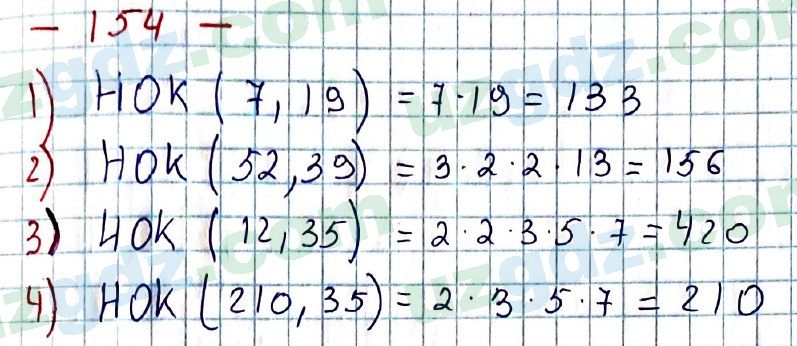 - 154 -
1) НОК (7, 19) = 7 · 19 = 133
2) НОК (52, 39) = 3 · 2 · 2 · 13 = 156
3) НОК (12, 35) = 2 · 2 · 3 · 5 · 7 = 420
4) НОК (210, 35) = 2 · 3 · 5 · 7 = 210